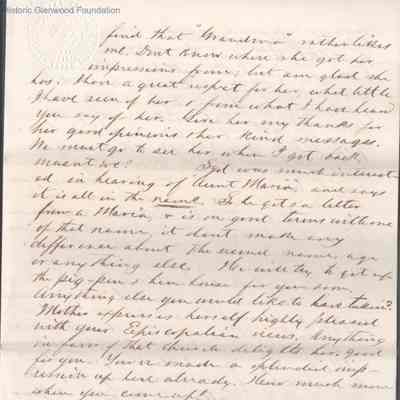 Historic Glenwood Foundation
find that "Grandma" rather likes
me. Dont know where she got her
impressions from; but am glad she
has. I have a great respect for her, what little
I have seen of her & from what I have heard
you say of her. Give her my thanks for
her good opinions & her kind messages.
We must go to see her when I get back,
mustn't we? Syd was much interest-
ed in hearing of Aunt Maria, and says
it is all in the name. If he gets a letter
from a Maria, & is on good terms with one
of that name, it don't make any
difference about the name, age
or anything else. We will try to get up
the pig-pen & hen house for you soon.
Anything else you would like to have taken?
Mother expresses herself highly pleased
with your Episcopalian views. Anything
in favor of that church delights her. Good
for you. You've made a splendid imp-
ression up here already. How much more
when you come up!